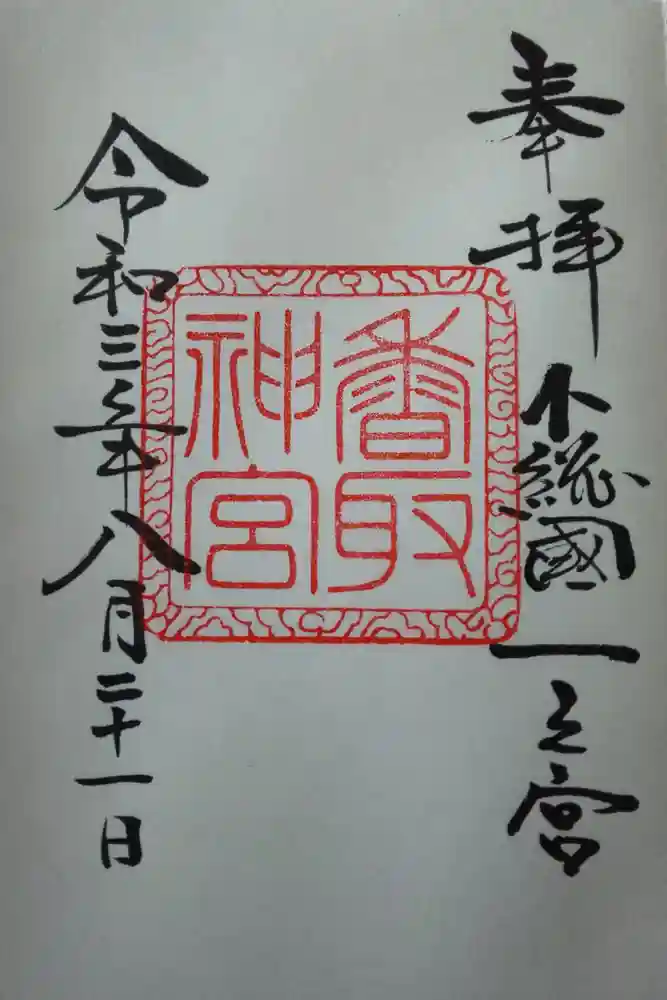 奉拝 下総國一之宮
香取
神宮
令和三年八月二十一日